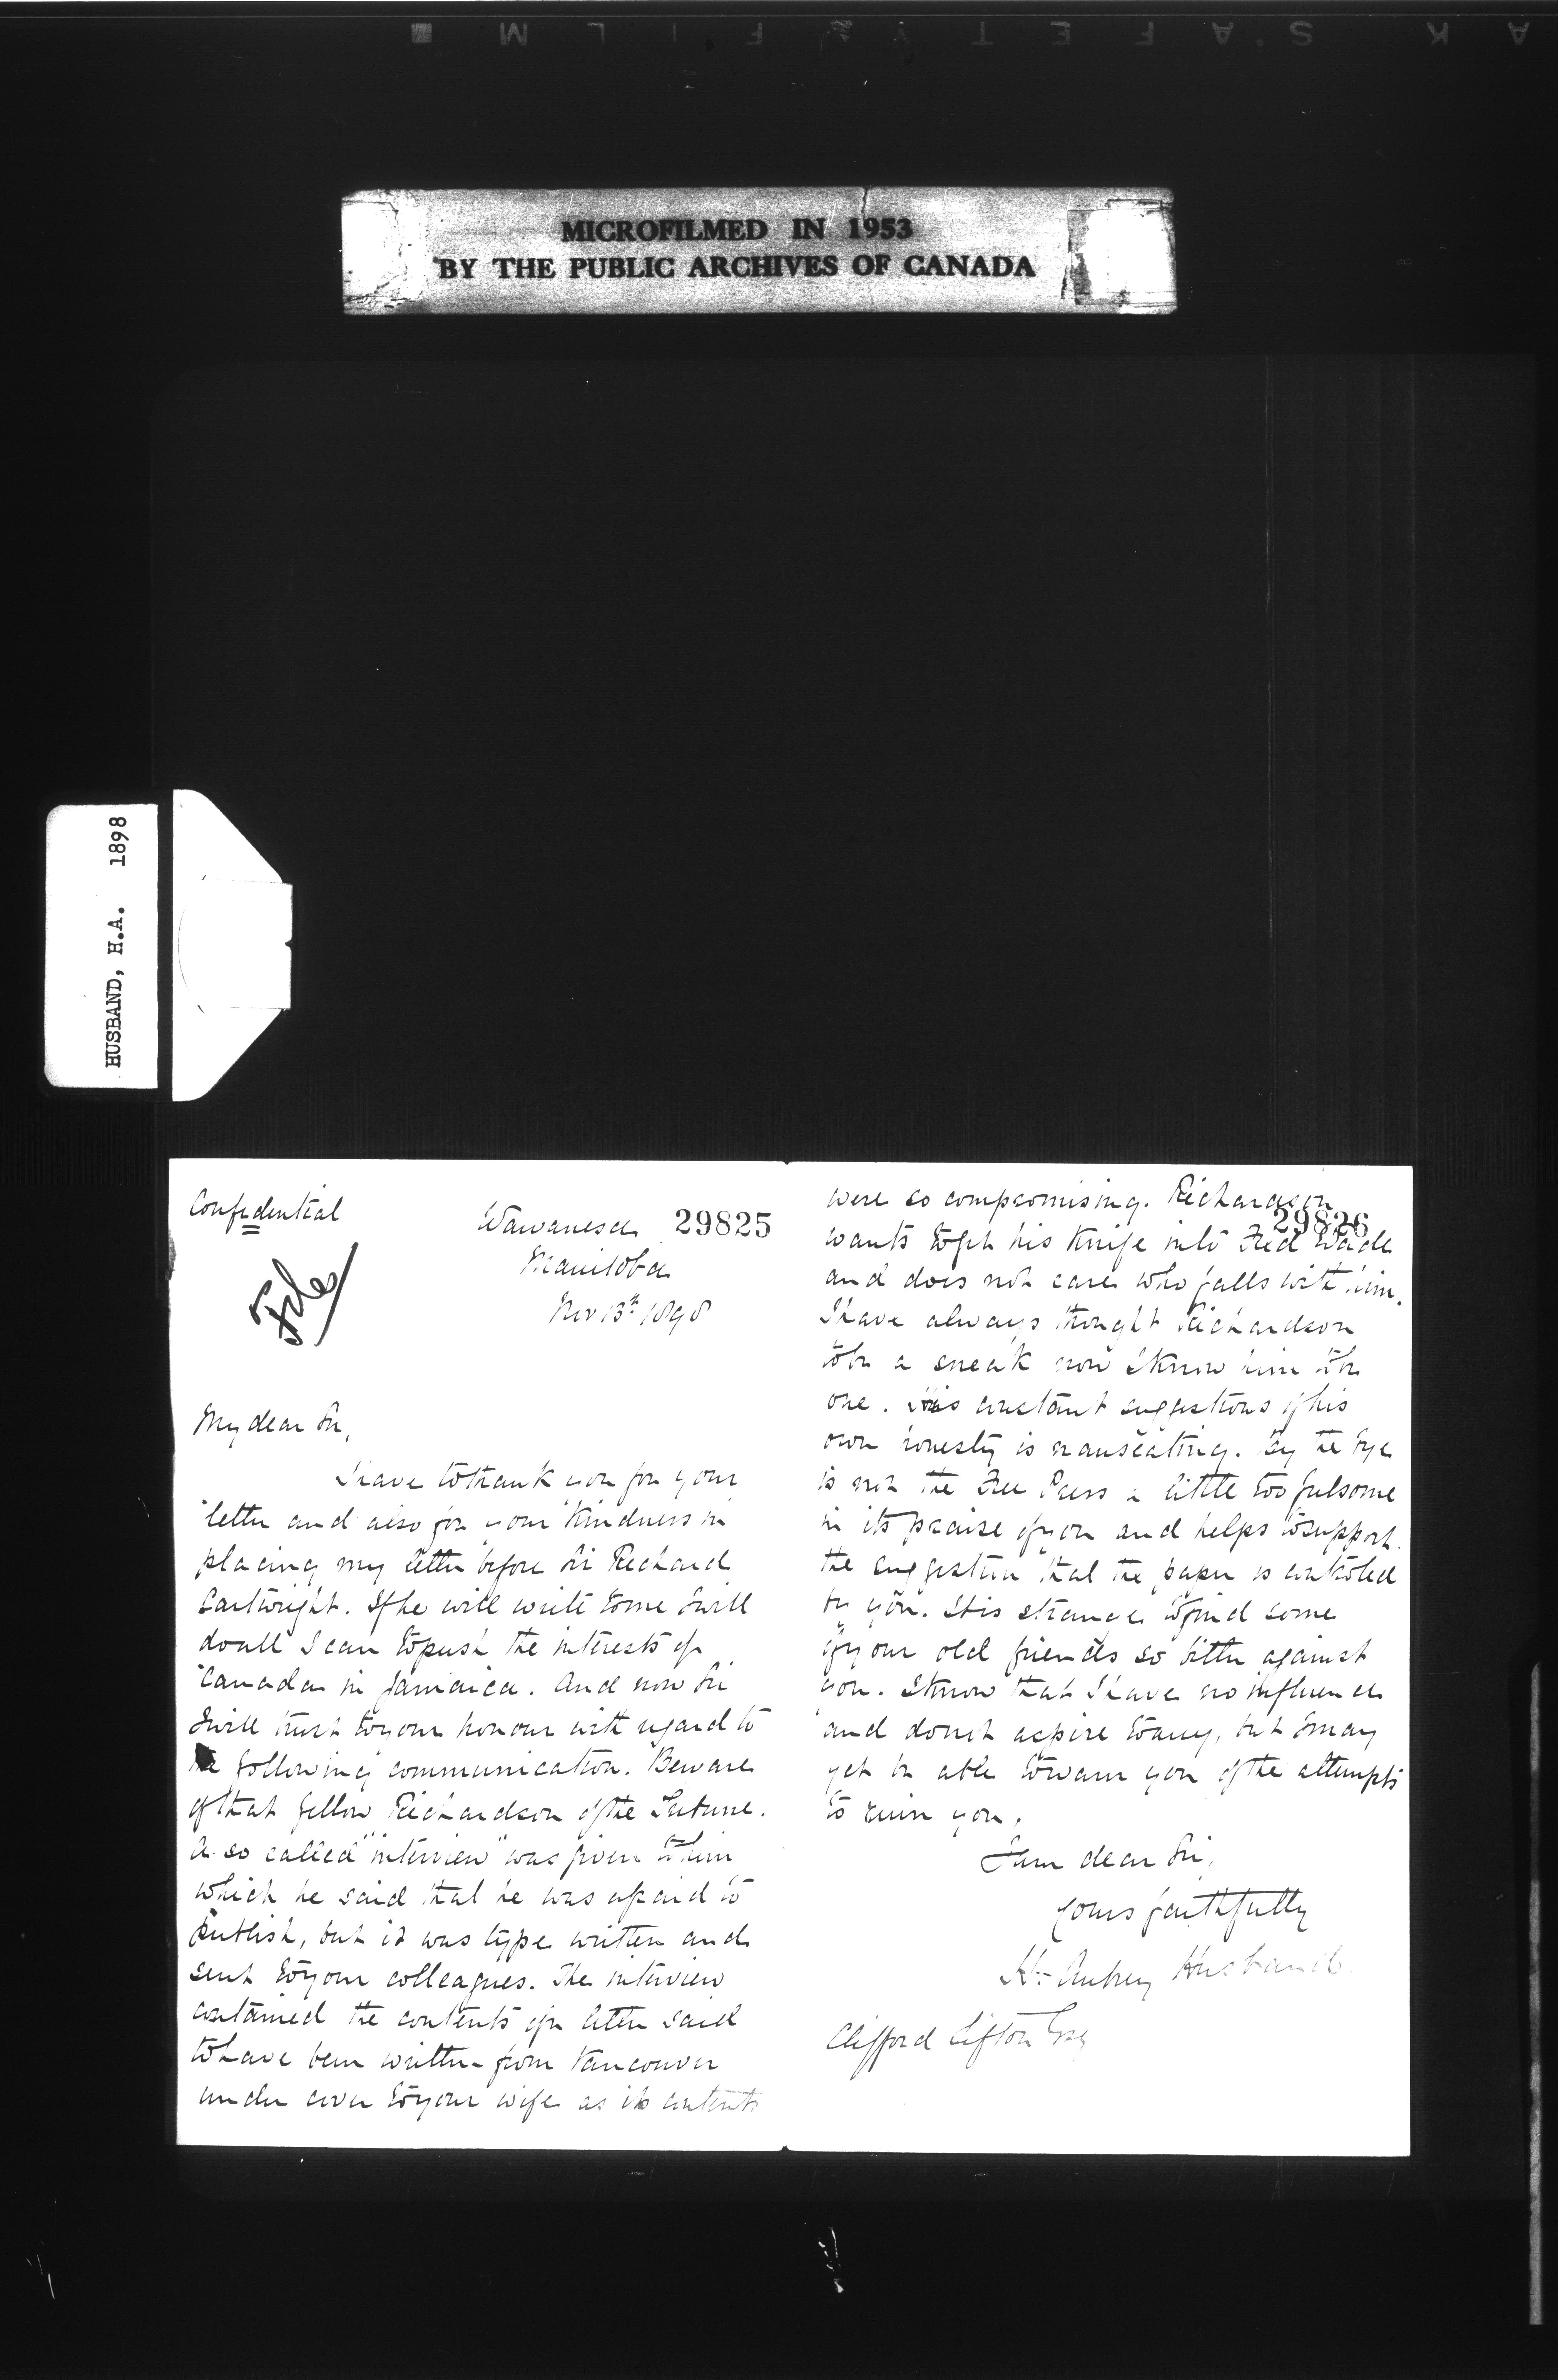 AK SAFETY FILM
MICROFILMED IN 1953
BY THE PUBLIC ARCHIVES OF CANADA
HUSBAND, H.A. 1898
Confidential
File
Wawanesa 29825
Manitoba
Nov 13th 1898
My dear Sir,
I have to thank you for your
letter and also for your kindness in
placing my letter before Sir Richard
Cartwright. If he will write to me I will
do all I can to push the interests of
Canada in Jamaica. And now Sir
I will trust to your honour with regard to
the following communication. Beware
of that fellow Richardson of the Tribune.
A so called "interview" was given to him
which he said that he was afraid to
publish, but it was type written and
sent to your colleagues. The interview
contained the contents of a letter said
to have been written from Vancouver
under cover to your wife as its contents
were so compromising. Richardson
29826
wants to get his knife into Fred Wade
and does not care who falls with him.
I have always thought Richardson
to be a sneak now I know him to be
one. His constant suggestions of his
own honesty is nauseating. By the bye
is not the Free Press a little too fulsome
in its praise of you and helps to support
the suggestion that the paper is controled
by you. It is strange to find some
of your old friends so bitter against
you. I know that I have no influence
and do not aspire to any, but I may
yet be able to warn you of the attempts
to ruin you.
I am dear Sir,
Yours faithfully
H. Aubrey Husband.
Clifford Sifton Esq